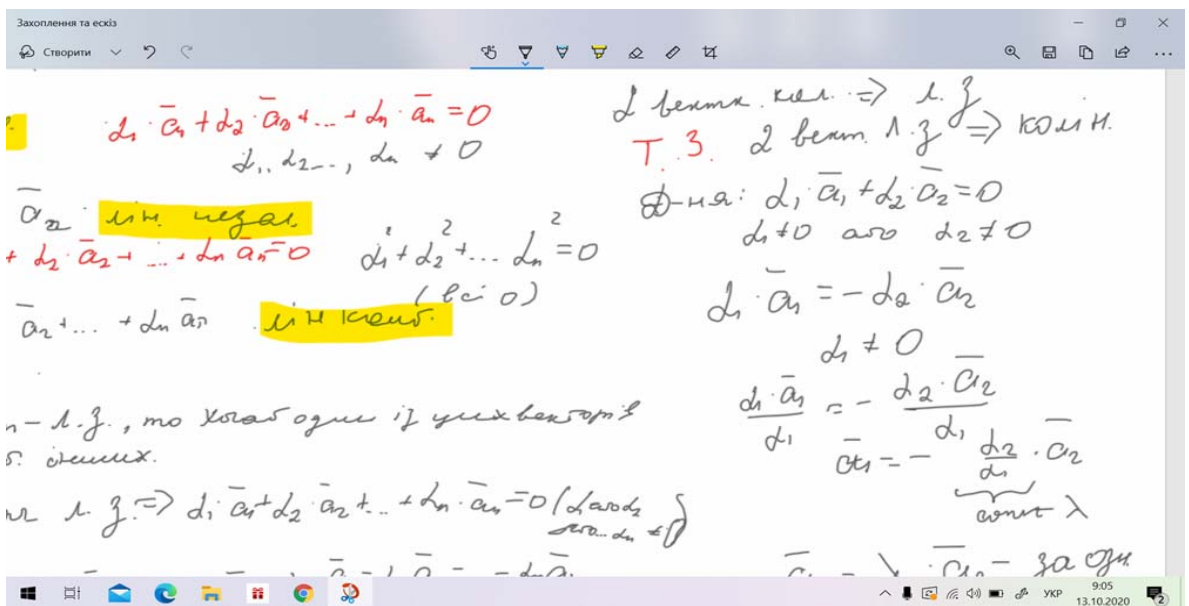 Захоплення та ескіз
Створити
α₁ · a̅₁ + α₂ · a̅₂ + ... + αₙ · a̅ₙ = 0
α₁, α₂ ..., αₙ ≠ 0
a̅₂ лін. незал.
+ α₂ · a̅₂ + ... + αₙ a̅ₙ = 0
α₁² + α₂² + ... αₙ² = 0
(всі 0)
a̅₂ + ... + αₙ a̅ₙ лін комб.
– л.з., то хочаб один із цих векторів
інших.
л.з. => α₁ · a̅₁ + α₂ · a̅₂ + ... + αₙ · a̅ₙ = 0 (α₁ або α₂
або ... αₙ ≠ 0)
2 вектн. кол. => л.з
Т.3. 2 вект. л.з => колін.
Д-ня: α₁ · a̅₁ + α₂ · a̅₂ = 0
α₁ ≠ 0 або α₂ ≠ 0
α₁ · a̅₁ = – α₂ · a̅₂
α₁ ≠ 0
α₁ · a̅₁ / α₁ = – α₂ · a̅₂ / α₁
a̅₁ = – α₂/α₁ · a̅₂
const λ
= λ · a̅₂ – за озн.
УКР
9:05
13.10.2020
2